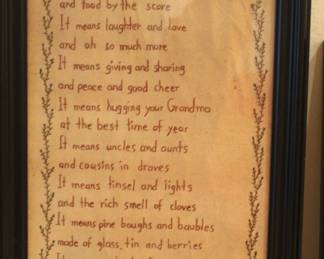 and food by the score
It means laughter and love
and oh so much more
It means giving and sharing
and peace and good cheer
It means hugging your Grandma
at the best time of year
It means uncles and aunts
and cousins in droves
It means tinsel and lights
and the rich smell of cloves
It means pine boughs and baubles
made of glass, tin and berries
It means